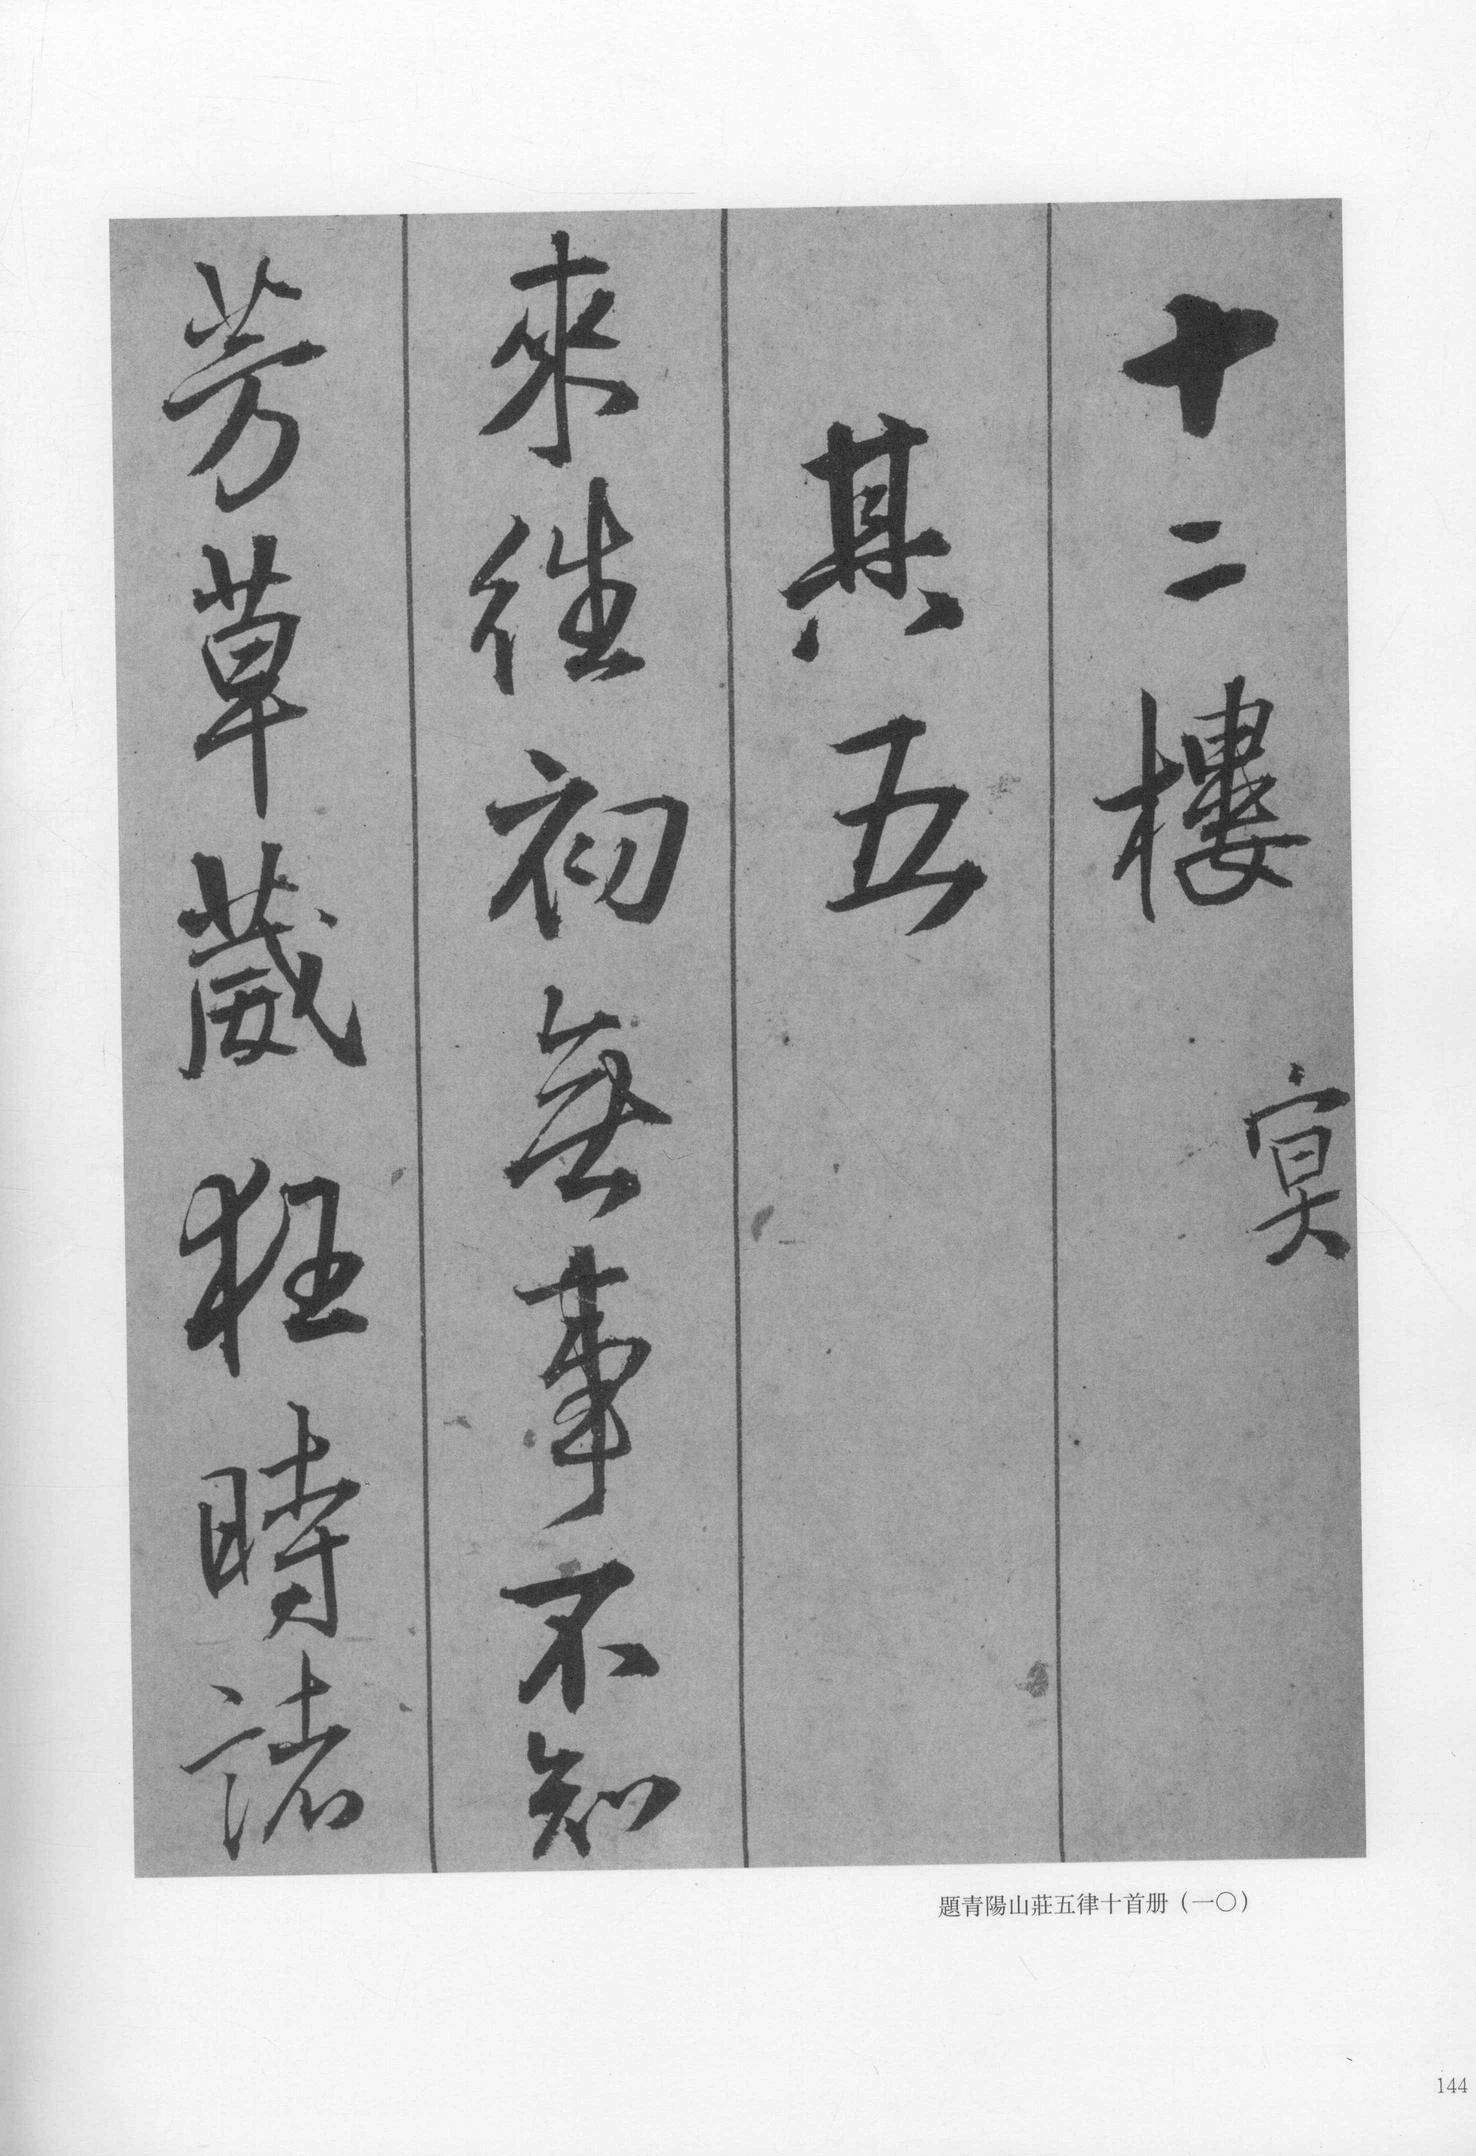 十二樓
冥
其五
來往初無事不知
芳草葳狂時諸
題青陽山莊五律十首册（一〇）
144